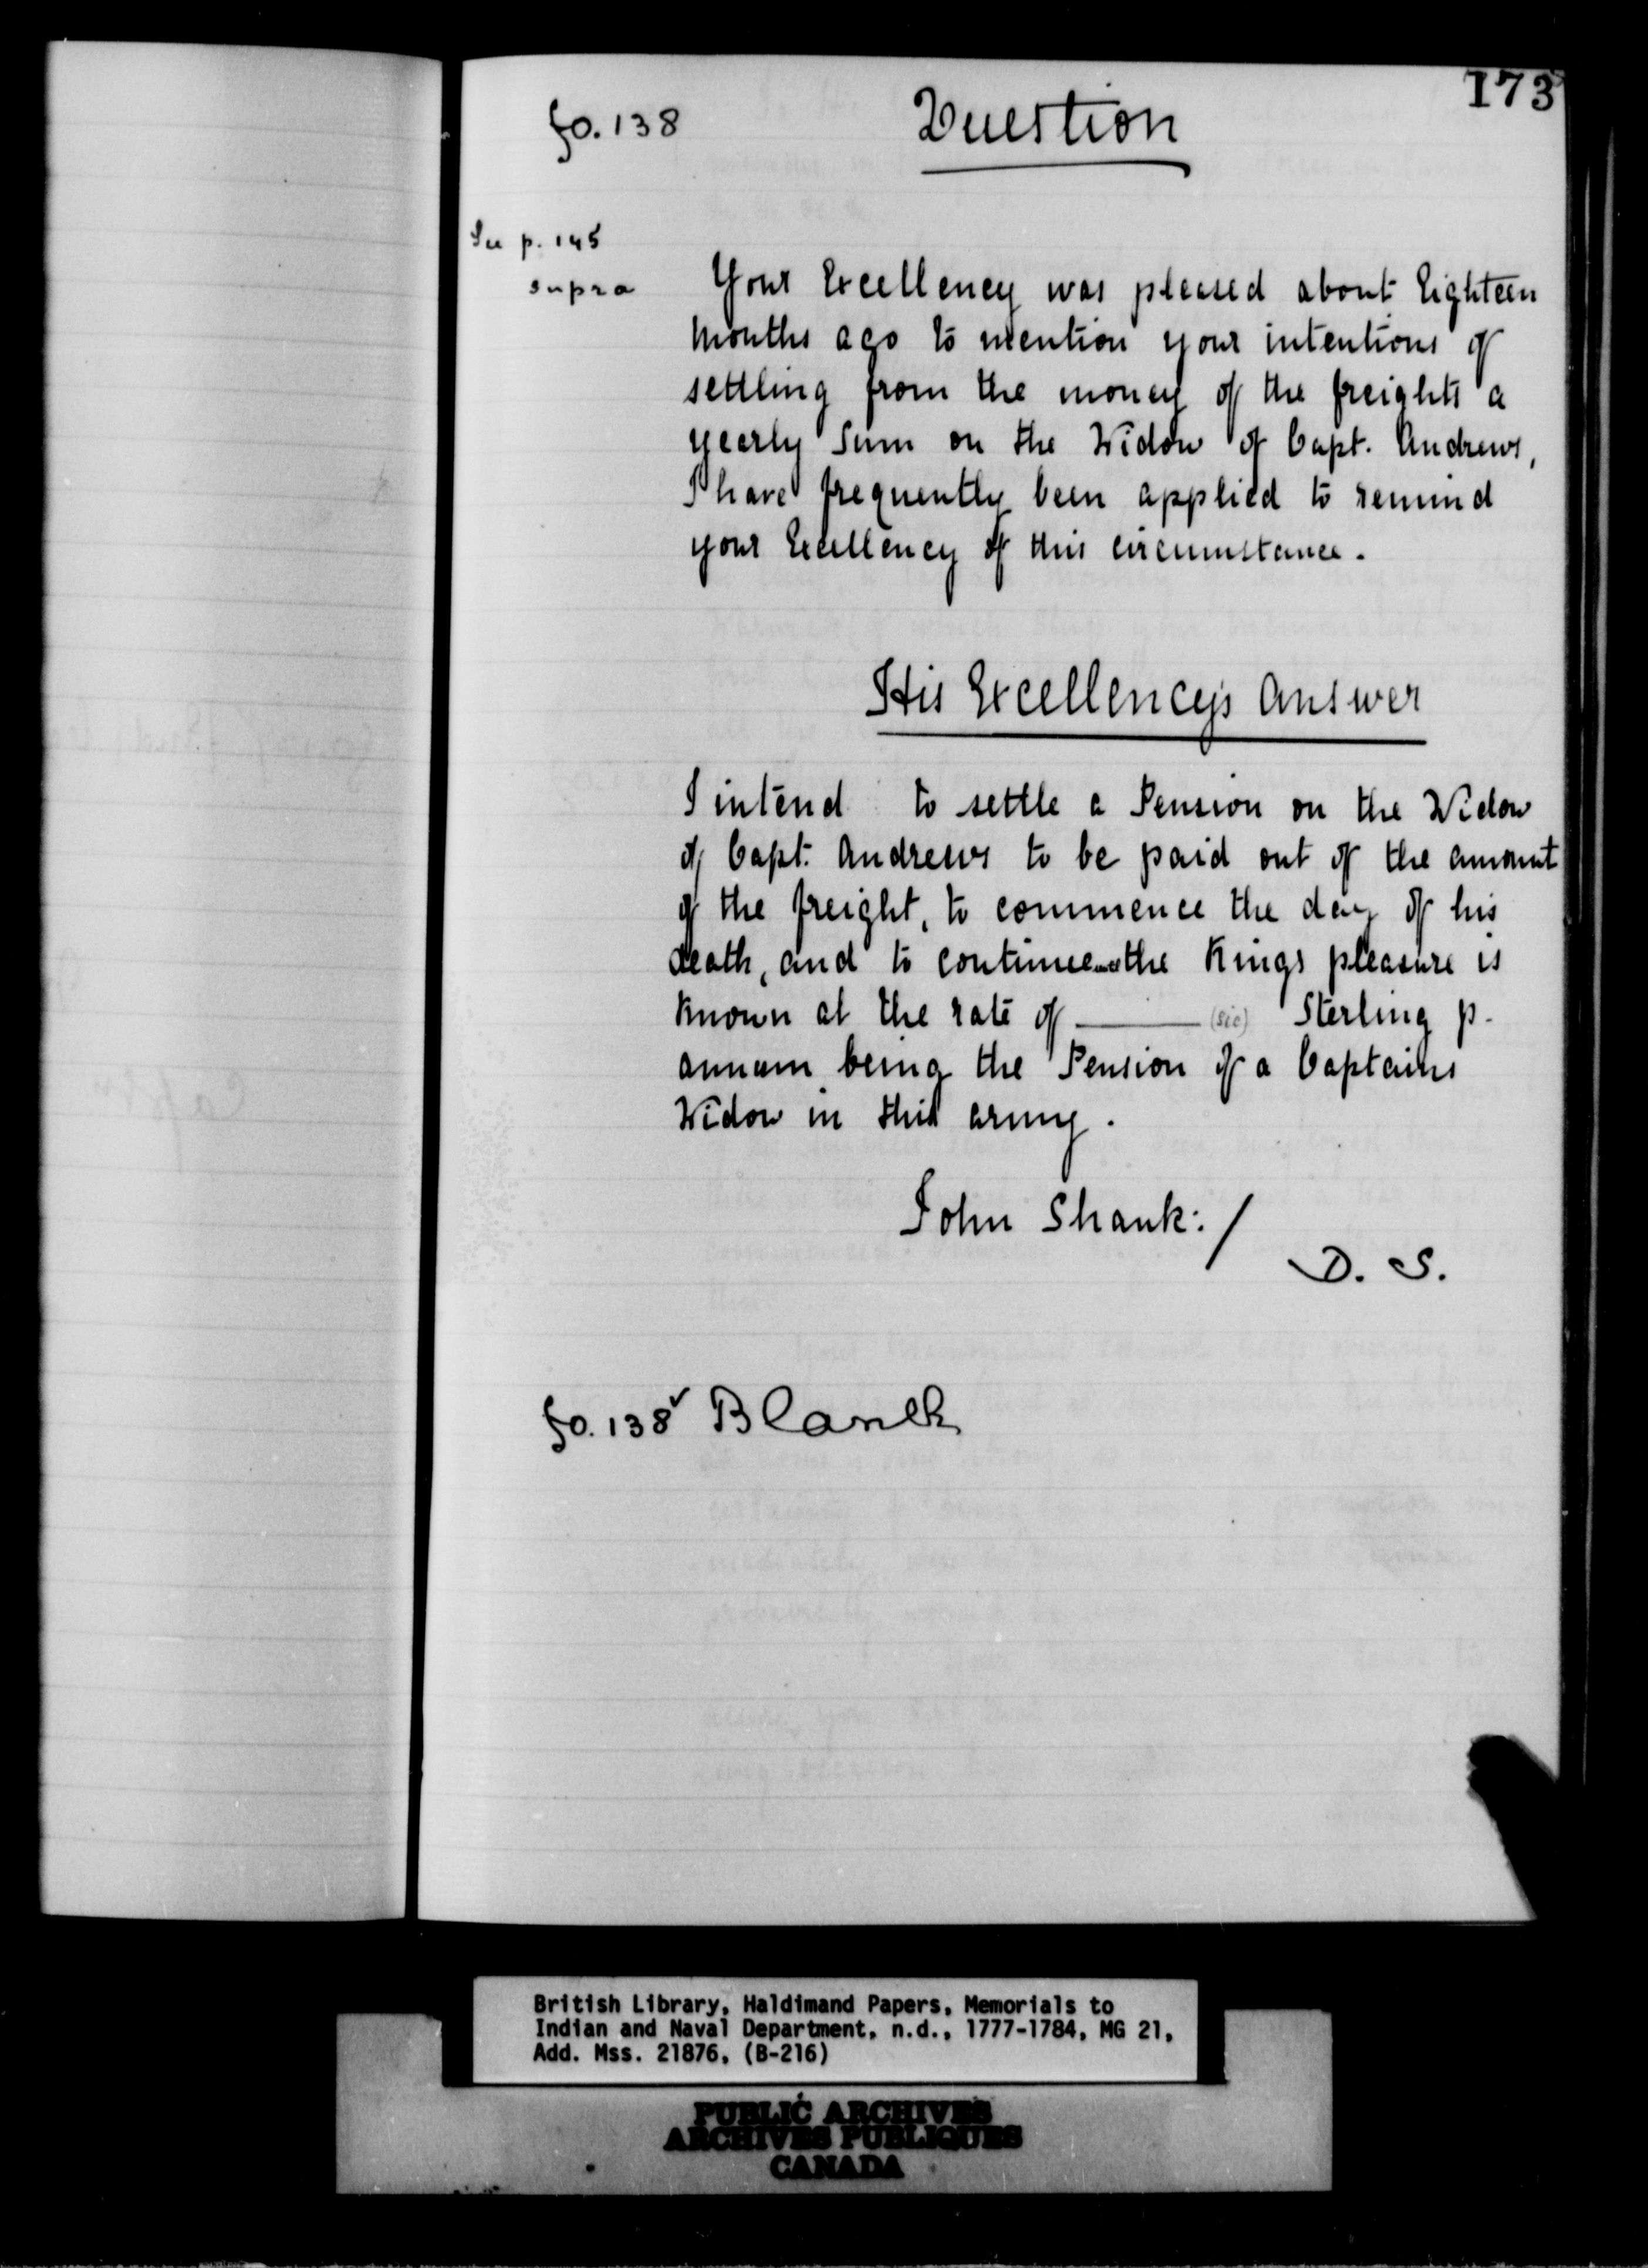 173
fo. 138
Question
See p. 145
supra
Your Excellency was pleased about Eighteen
months ago to mention your intentions of
settling from the money of the freights a
yearly Sum on the Widow of Capt. Andrews,
I have frequently been applied to remind
your Excellency of this circumstance.
His Excellency's Answer
I intend to settle a Pension on the Widow
of Capt. Andrews to be paid out of the amount
of the freight, to commence the day of his
death, and to continue the Kings pleasure is
known at the rate of ——— (sic) Sterling p.
annum being the Pension of a Captains
Widow in this army.
John Shank:/
D. S.
fo. 138v Blank
British Library, Haldimand Papers, Memorials to
Indian and Naval Department, n.d., 1777-1784, MG 21,
Add. Mss. 21876, (B-216)
PUBLIC ARCHIVES
ARCHIVES PUBLIQUES
CANADA